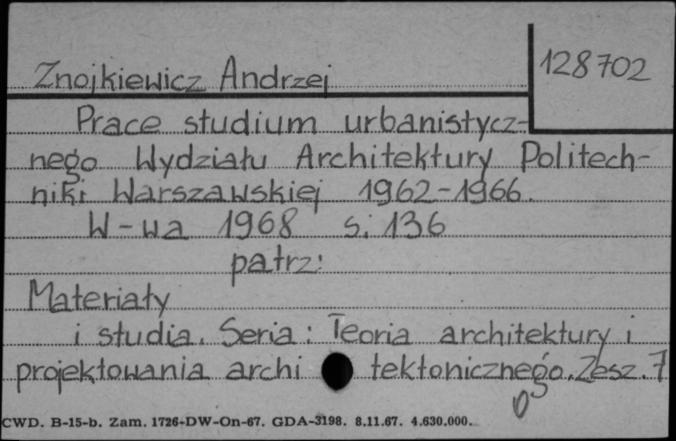 128702
Znojkiewicz Andrzej
Prace studium urbanistycz-
nego Wydziału Architektury Politech-
niki Warszawskiej 1962-1966.
W-wa 1968 s. 136
patrz:
Materiały
i studia. Seria: Teoria architektury i
projektowania archi tektonicznego. Zesz. 7
CWD. B-15-b. Zam. 1726-DW-On-67. GDA-3198. 8.11.67. 4.630.000.